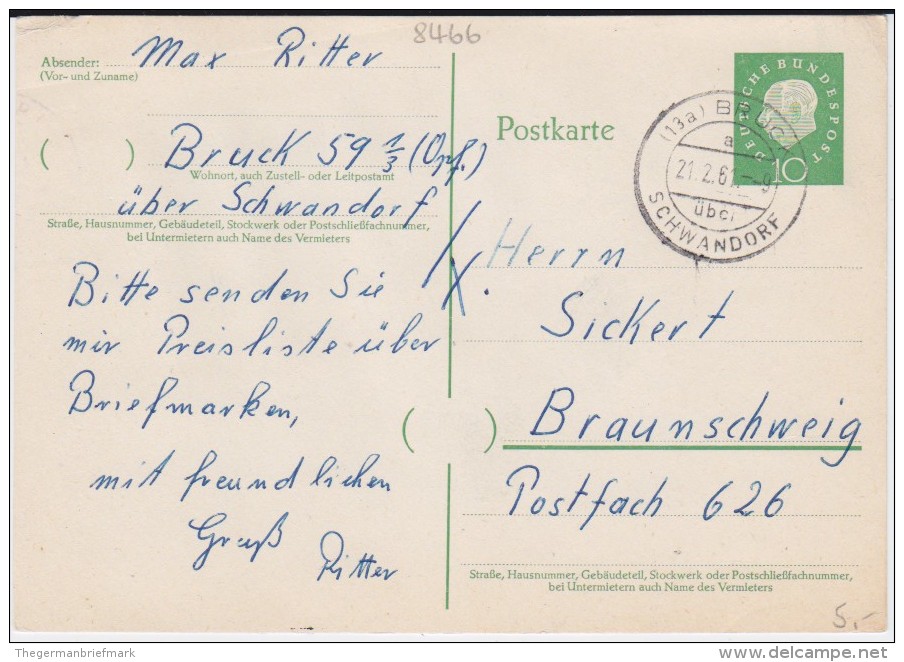 8466
Absender: Max Ritter
(Vor- und Zuname)
( ) Bruck 59 1/3 (Opf.)
Wohnort, auch Zustell- oder Leitpostamt
über Schwandorf
Straße, Hausnummer, Gebäudeteil, Stockwerk oder Postschließfachnummer,
bei Untermietern auch Name des Vermieters
Bitte senden Sie
mir Preisliste über
Briefmarken,
mit freundlichen
Gruß
Ritter
Postkarte
DEUTSCHE BUNDESPOST
10
(13a) BRUCK
a
21.2.61.--9
über
SCHWANDORF
Herrn
Sickert
( ) Braunschweig
Postfach 626
Straße, Hausnummer, Gebäudeteil, Stockwerk oder Postschließfachnummer,
bei Untermietern auch Name des Vermieters
5,-
Thegermanbriefmark
delcampe.net